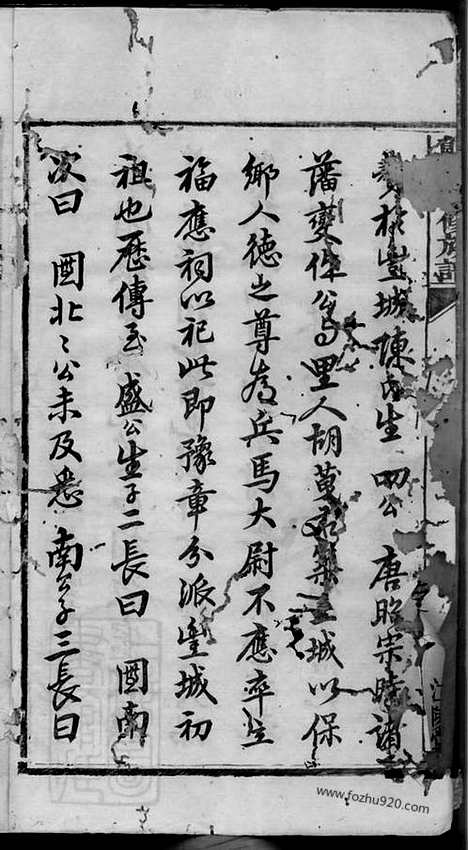 於豐城陳氏生 四公 唐昭宗時諸
藩變作公與里人胡 築豐城以保
鄉人德之尊為兵馬大尉不應卒立
福應祠以祀此即豫章分派豐城初
祖也歷傳至 盛公生子二長曰 國南
次曰 國北北公未及悉 南公子三長曰
www.fozhu920.com